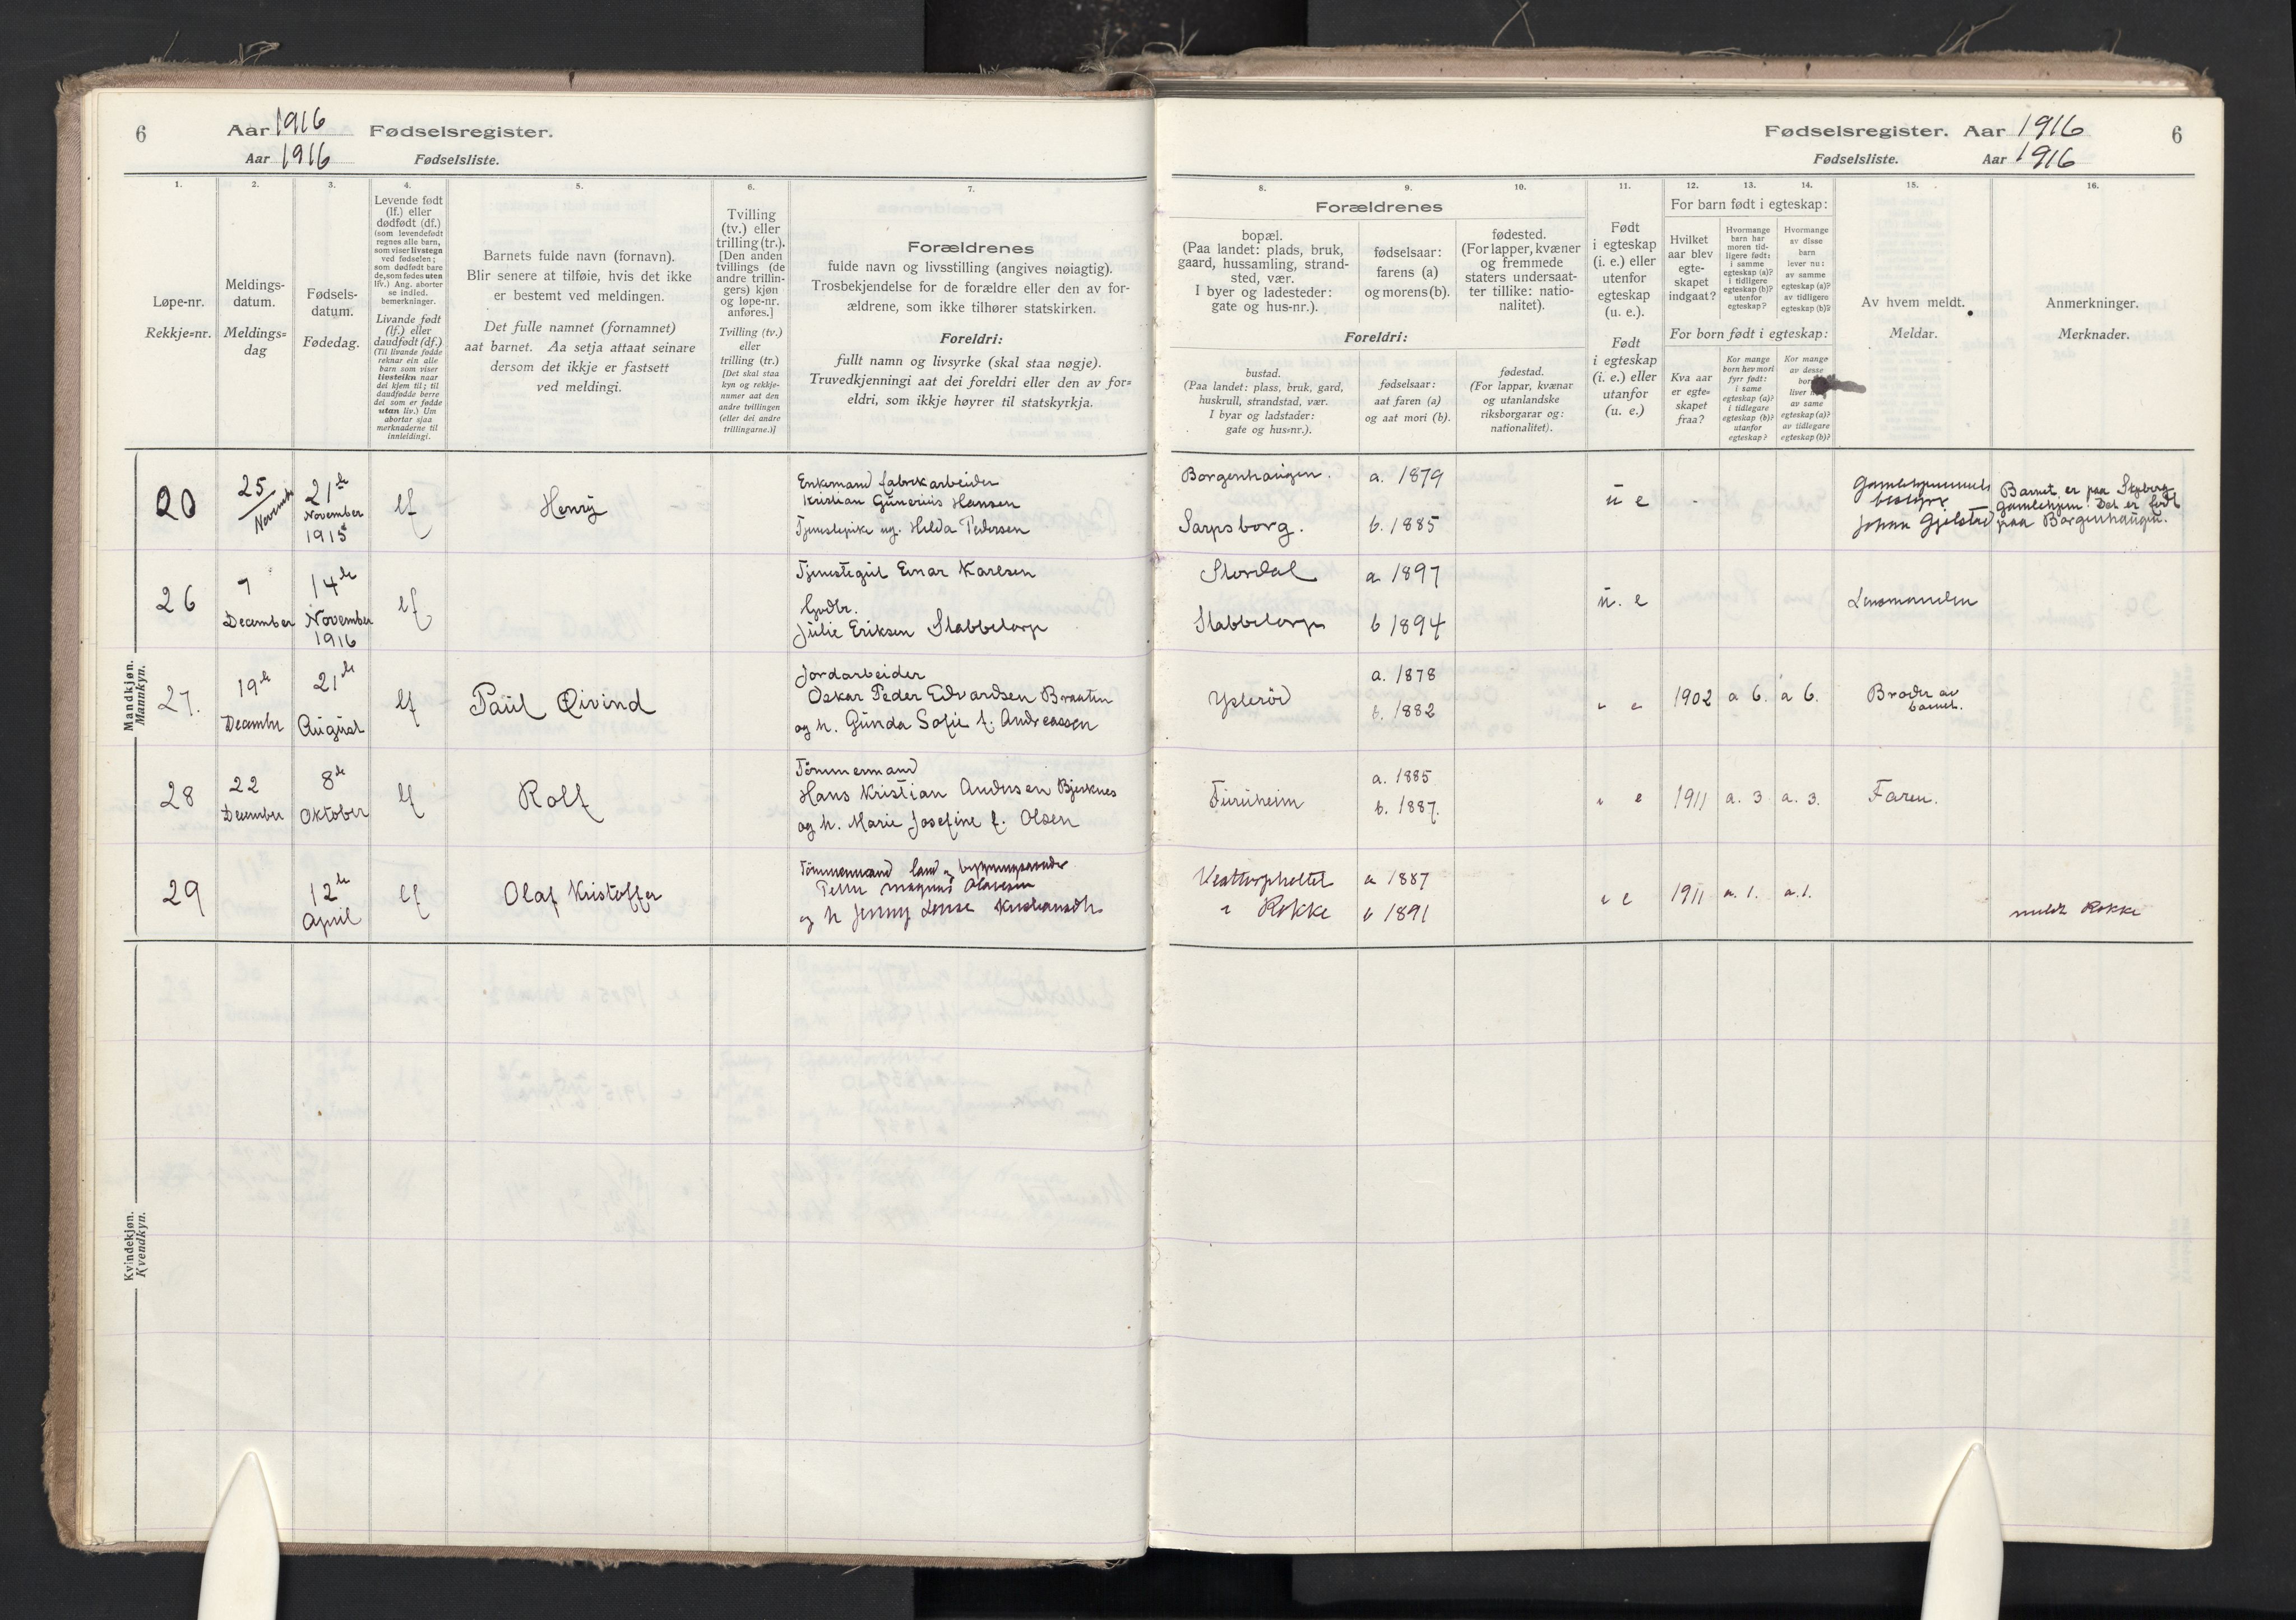 6 Aar 1916 Fødselsregister.
Aar 1916 Fødselsliste.
Fødselsregister. Aar 1916 6
Fødselsliste. Aar 1916
1.
Løpe-nr.
Rekkje=nr.
2.
Meldings-
datum.
Meldings=
dag
3.
Fødsels-
datum.
Fødedag.
4.
Levende født
(lf.) eller
dødfødt (df.)
(som levendefødt
regnes alle barn,
som viser livstegn
ved fødselen;
som dødfødt bare
de, som fødes uten
lfv.) Ang. aborter
se indled.
bemerkninger.
Livande født
(lf.) eller
daudfødt (df.)
(Til livande fødde
reknar ein alle
barn som viser
livsteikn naar
dei kjem til; til
daudfødde berre
dei som er fødde
utan liv.) Um
abortar sjaa
merknaderne til
innleidingi.
5.
Barnets fulde navn (fornavn).
Blir senere at tilføie, hvis det ikke
er bestemt ved meldingen.
Det fulle namnet (fornamnet)
aat barnet. Aa setja attaat seinare
dersom det ikkje er fastsett
ved meldingi.
6.
Tvilling
(tv.) eller
trilling (tr.).
[Den anden
tvillings (de
andre trillin-
gers) kjøn
og løpe-nr.
anføres.]
Tvilling (tv.)
eller
trilling (tr.)
[Det skal staa
kyn og rekkje-
numer aat den
andre tvillingen
(eller dei andre
trillingarne.)]
7.
Forældrenes
fulde navn og livsstilling (angives nøiagtig).
Trosbekjendelse for de forældre eller den av for-
ældrene, som ikke tilhører statskirken.
Foreldri:
fullt namn og livsyrke (skal staa nøgje).
Truvedkjenningi aat dei foreldri eller den av for=
eldri, som ikkje høyrer til statskyrkja.
Forældrenes
8.
bopæl.
(Paa landet: plads, bruk,
gaard, hussamling, strand-
sted, vær.
I byer og ladesteder:
gate og hus-nr.).
Foreldri:
bustad.
(Paa landet: plass, bruk, gard,
huskrull, strandstad, vær.
I byar og ladstader:
gate og hus=nr.).
9.
fødselsaar:
farens (a)
og morens (b).
fødselsaar:
aat faren (a)
og aat mori (b).
10.
fødested.
(For lapper, kvæner
og fremmede
staters undersaat-
ter tillike: natio-
nalitet).
fødestad.
(For lappar, kvænar
og utanlandske
riksborgarar og:
nationalitet).
11.
Født
i egteskap
(i. e.) eller
utenfor
egteskap
(u. e.).
Født
i egteskap
(i. e.) eller
utanfor
(u. e.).
For barn født i egteskap:
12.
Hvilket
aar blev
egte-
skapet
indgaat?
For born født i egteskap:
Kva aar
er egte=
skapet
fraa?
13.
Hvormange
barn har
moren tid-
ligere født:
i samme
egteskap (a)?
i tidligere
egteskap (b)?
utenfor
egteskap?
Kor mange
born hev mori
fyrr født:
i same
egteskap (a)?
i tidlegare
egteskap (b)?
utanfor
egteskap?
14.
Hvormange
av disse
barn
lever nu:
av samme
egteskap (a)?
av tidligere
egteskap (b)?
Kor mange
av desse
av same
egteskap (a)?
av tidlegare
egteskap (b)?
15.
Av hvem meldt.
Meldar.
16.
Anmerkninger.
Merknader.
Mandkjøn.
Mannkyn.
20
25
November
21de
November
1915
lf
Henry
Enkemand fabrikarbeider
Kristian Günerius Hansen
Tjenestepike ug. Helda Pedersen
Borgenhaugen. a. 1879
Sarpsborg. b. 1885
u e
Gamlehjemmets
bestyrer
Johan Gjelstad
Barnet er paa Skjeberg
gamlehjem. Det er født
paa Borgenhaugen.
26
7
December
14de
November
1916
lf
Tjenestegut Einar Karlsen
Gvdbr.
Julie Eriksen Stabbetorp
Stordal a. 1897
Stabbetorp b 1894
u. e
Lensmanden
27.
19de
December
21de
August
lf
Paul Øivind
Jordarbeider
Oskar Peder Edvardsen Braaten
og h. Gunda Sofie f. Andreassen
Yslerød
a. 1878
b. 1882
i e 1902 a 6. a 6.
Broder av
barnet.
28
22
December
8de
Oktober
lf
Rolf
Tömmermand
Hans Kristian Andersen Bjerknes
og h. Marie Josefine f. Olsen
Furuheim
a. 1885
b. 1887.
i e 1911 a. 3 a. 3.
Faren.
29
12te
April
lf
Olaf Kristoffer
Tömmermand
Petter Magnus Olavesen
og h Jenny Lovise Kristiansdtr.
i Rokke
a 1887
b 1891
i e 1911 a. 1. a.1.
meldt Rokke
Kvindekjøn.
Kvendkyn.